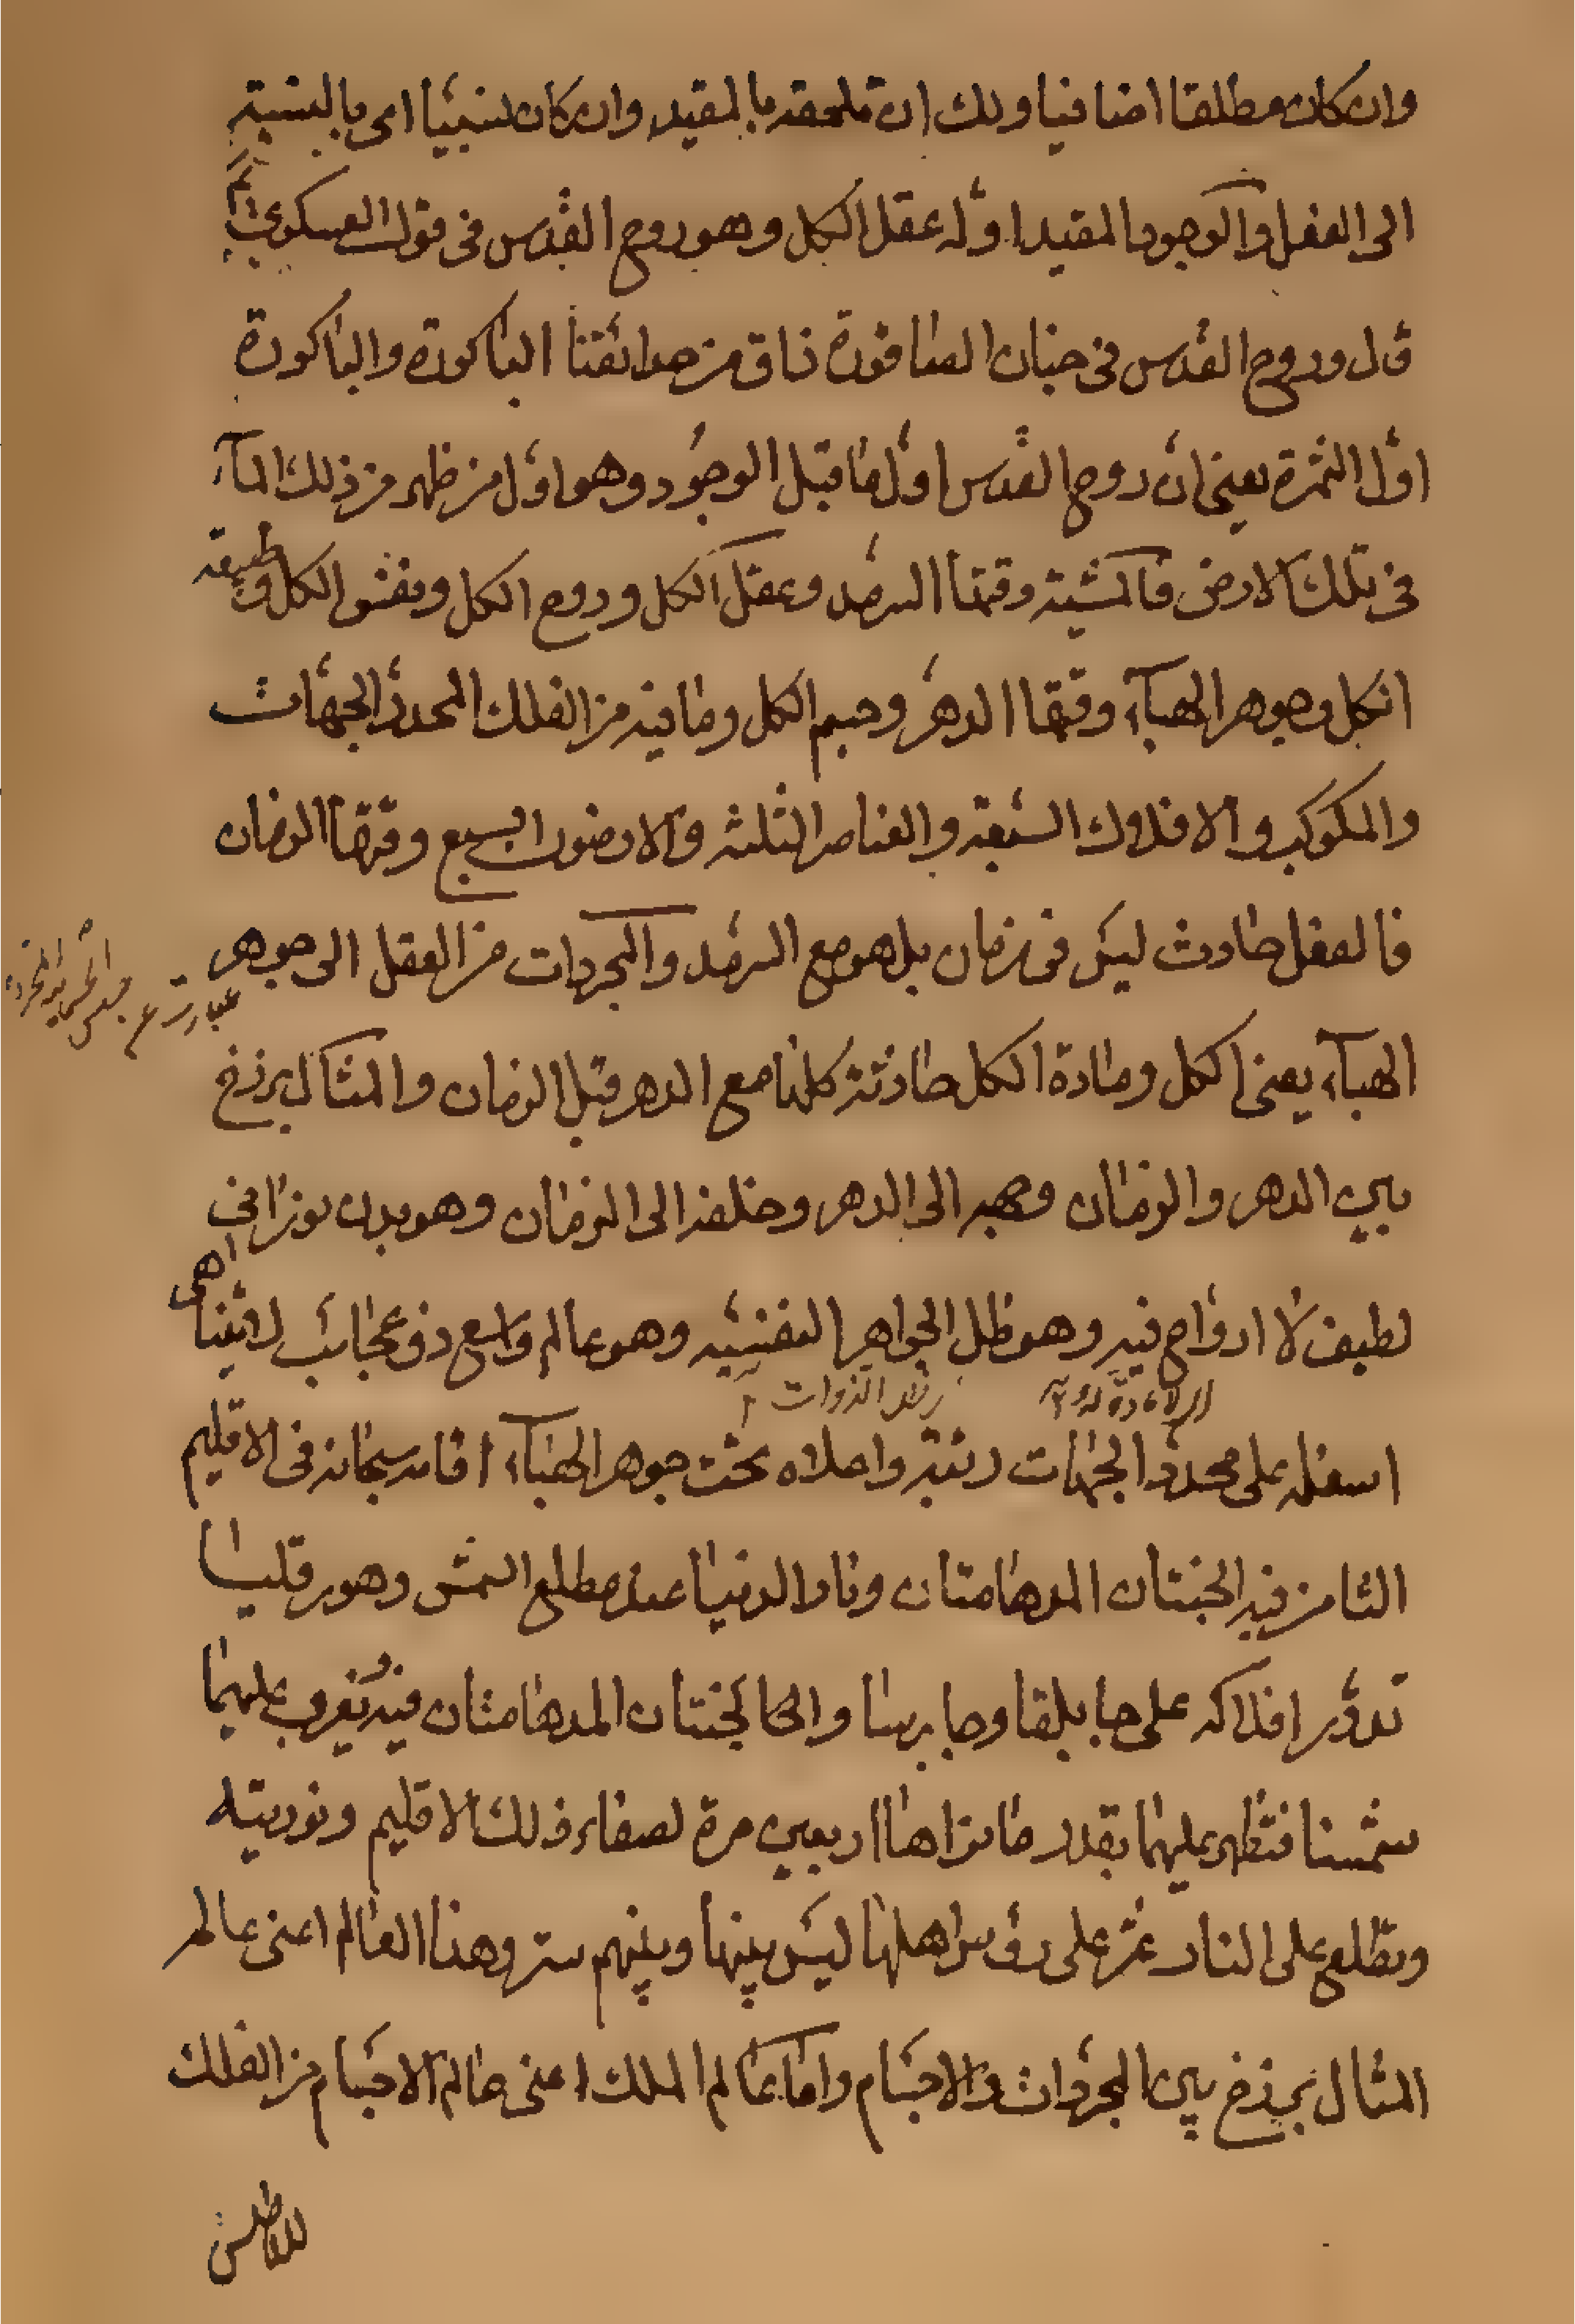 وان كان مطلقا اضافيا ولك ان تلحقه بالمقيد وان كان نسبيّا اى بالنسبة
الى الفعل والوجود المقيد اوّله عقل الكل وهو روح القدس فى قول العسكرى ع
قال وروح القدس فى جنان الصاقورة ذاق من حدائقنا الباكورة والباكورة
اوّل الثمرة يعنى انّ روح القدس اوّل ما قبل الوجود وهو اوّل من ظهر من ذلك المآء
فى تلك الارض فالمشية وقتها السرمد وعقل الكل وروح الكل ونفس الكل وطبيعة
الكل وجوهر الهبآء وقتها الدهر وجسم الكل وما فيه من الفلك المحدد الجهات
والمكوكب والافلاك السبعة والعناصر الثلثة والارضون السبع وقتها الزمان
فالفعل حادث ليس فى زمان بل هو مع السرمد والمجردات من العقل الى جوهر
الهبآء يعنى الكل ومادة الكل حادثة كلها مع الدهر قبل الزمان والمثال برزخ
بين الدهر والزمان وجهه الى الدهر وخلفه الى الزمان وهو بدن نورانى
لطيف لا ارواح فيه وهو ظل الجواهر النفسيّه وهو عالم واسع ذو عجائب لا تتناهى
اسفله على محدد الجهات رتبة واعلاه تحت جوهر الهبآء اقامه سبحانه فى الاقليم
الثامن فيه الجنتان المدهامتان ونار الدنيا عند مطلع الشمس وهورقليا
تدوّر افلاكه على جابلقا وجابرسا والجنتان المدهامتان فيه تغرب عليهما
شمسنا فتظهر عليهما بقدر ما نراها اربعين مرة لصفاء ذلك الاقليم ونوريته
وتطلع على النار تمرّ على رؤس اهلها ليس بينها وبينهم ستر وهذا العالم اعنى عالم
المثال برزخ بين المجردات والاجسام واما عالم الملك اعنى عالم الاجسام من الفلك
الاطلس